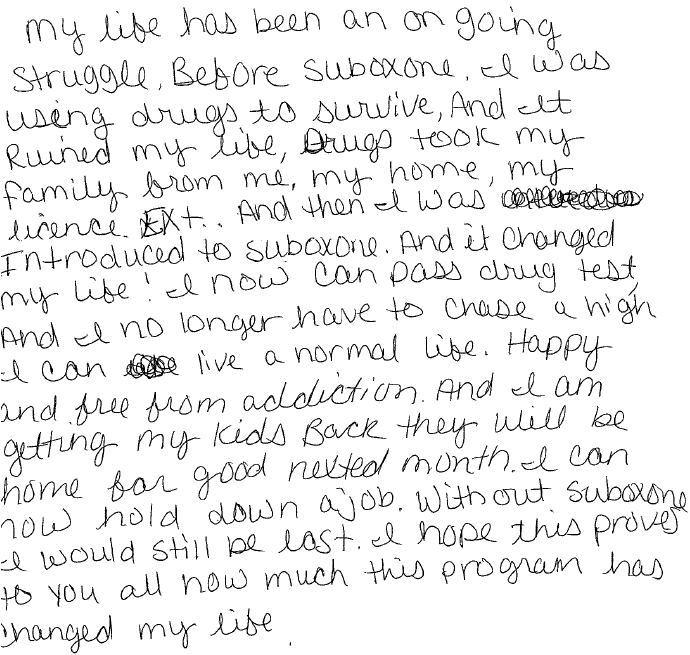 My life has been an on going
Struggle, Before suboxone, I was
using drugs to survive, And It
Ruined my life, Drugs took my
family from me, my home, my
licence. EXt.. And then I was
Introduced to suboxone. And it changed
my life! I now can pass drug test,
And I no longer have to chase a high
I can live a normal life. Happy
and free from addiction. And I am
getting my kids Back they will be
home for good nexted month. I can
now hold down a job. Without suboxone
I would still be lost. I hope this proves
to you all how much this program has
changed my life.